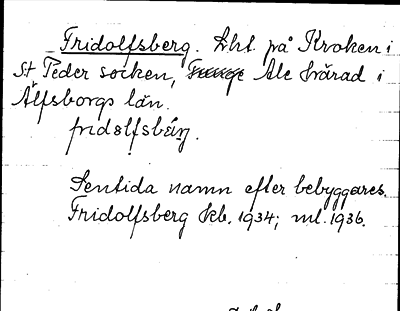 Fridolfsberg. Lht. på Kroken i
St Peder socken, Ale härad i
Älfsborgs län.
fridɵlfsbéŋ.
Sentida namn efter bebyggares.
Fridolfsberg kb. 1934; ml. 1936.